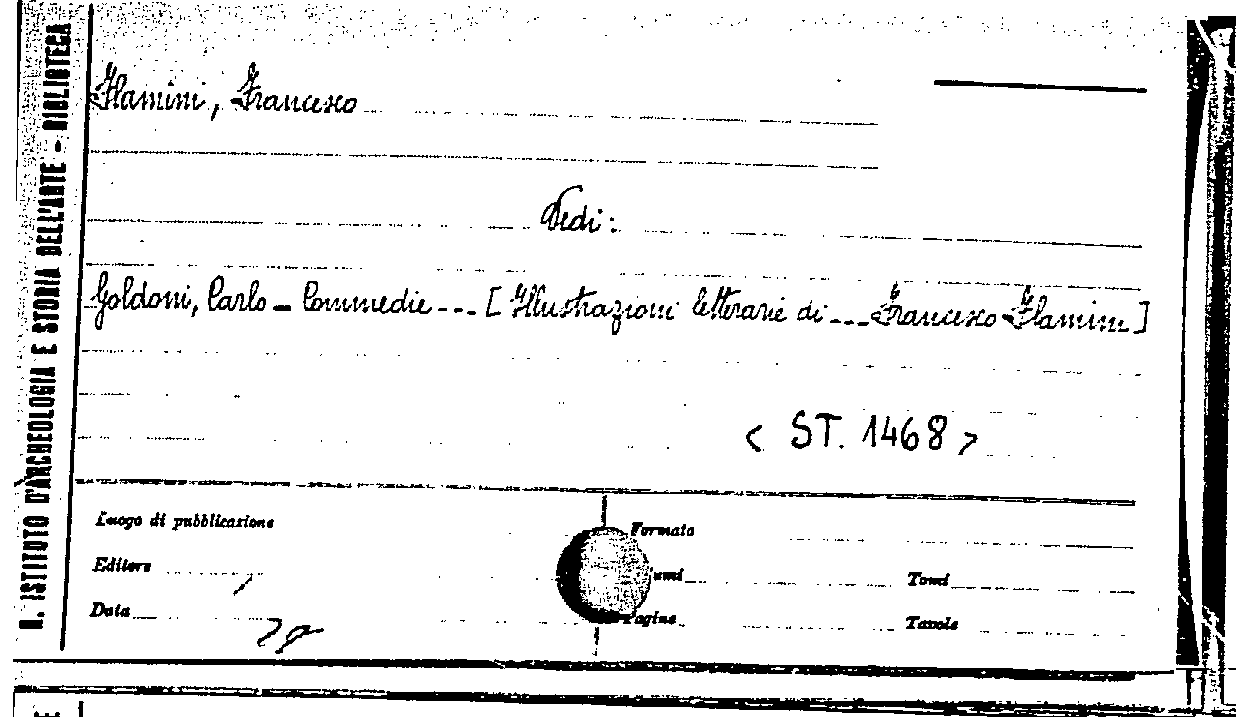 R. ISTITUTO D'ARCHEOLOGIA E STORIA DELL'ARTE - BIBLIOTECA
Flamini, Francesco
Vedi:
Goldoni, Carlo - Commedie --- [Illustrazioni letterarie di --- Francesco Flamini]
< ST. 1468 >
Luogo di pubblicazione
Formato
Editore
umi
Tomi
Data
Pagine
Tavole